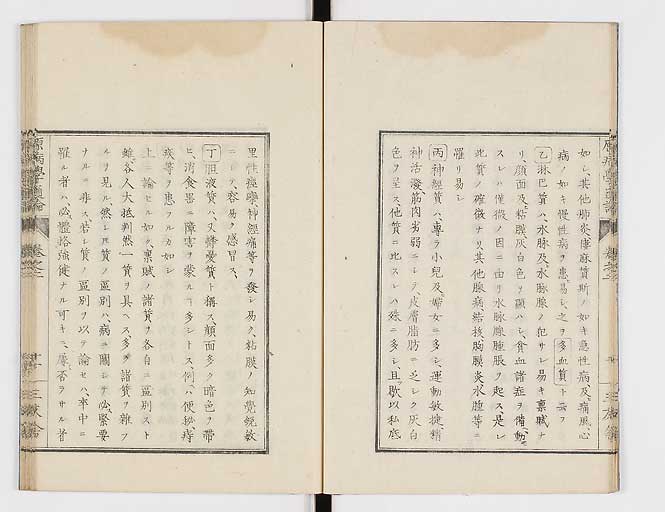 如シ、其他肺炎僂麻質斯ノ如キ急性病、及痛風、心
病ノ如キ慢性病ヲ患ヘ易シ、之ヲ多血質ト云フ
乙淋巴質ハ、水脉及水脉腺ノ犯サレ易キ稟賦ナ
リ、顔面及粘膜灰白色ヲ顯ハシ、貧血諸症ヲ備フ、動
スレハ僅微ノ因ニ由リ水脉腺腫脹ヲ起ス、是レ
此質ノ確徵ナリ、其他腺病、結核、胸膜炎、水腫等ニ
罹リ易シ
丙神經質ハ、專ラ小兒及婦女ニ多シ、運動敏捷精
神活潑筋肉劣弱ニシテ、皮膚脂肪ニ乏シク灰白
色ヲ呈ス、他質ニ比スレハ殊ニ多シ、且歇以私底
里性痙攣、神經痛等ヲ發シ易ク、粘膜ノ知覺銳敏
ニシテ、容易ク感冒ス、
丁胆液質ハ、又鬱憂質ト稱ス、顔面多ク暗色ヲ帶
ヒ、消食器ニ障害ヲ蒙ルヿ多シトス、例ヘハ便秘痔
疾等ヲ患フルカ如シ
上ニ論セルカ如ク、稟賦ノ諸質ヲ各自ニ區別スト
雖、各人大抵判然一質ヲ具ヘス、多ク諸質ヲ雜フ
ルヲ見ル、然レ𪜈質ノ區別ハ、病ニ關シテ必緊要
ナルニ非ス、若シ質ノ區別ヲ以テ論セハ、卒中ニ
罹ル者ハ、必體格強健ナル可キニ、時トシテ否ラサル者
原病學通論
卷之二
三友舍